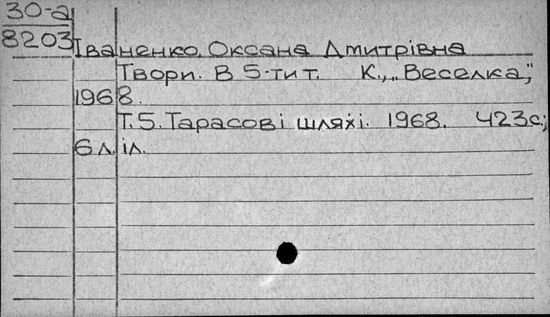 30-а
8203
Іваненко, Оксана Дмитрівна
Твори. В 5-ти т. К., „Веселка,"
1968.
Т.5. Тарасові шляхі. 1968. 423с.;
6 л. іл.